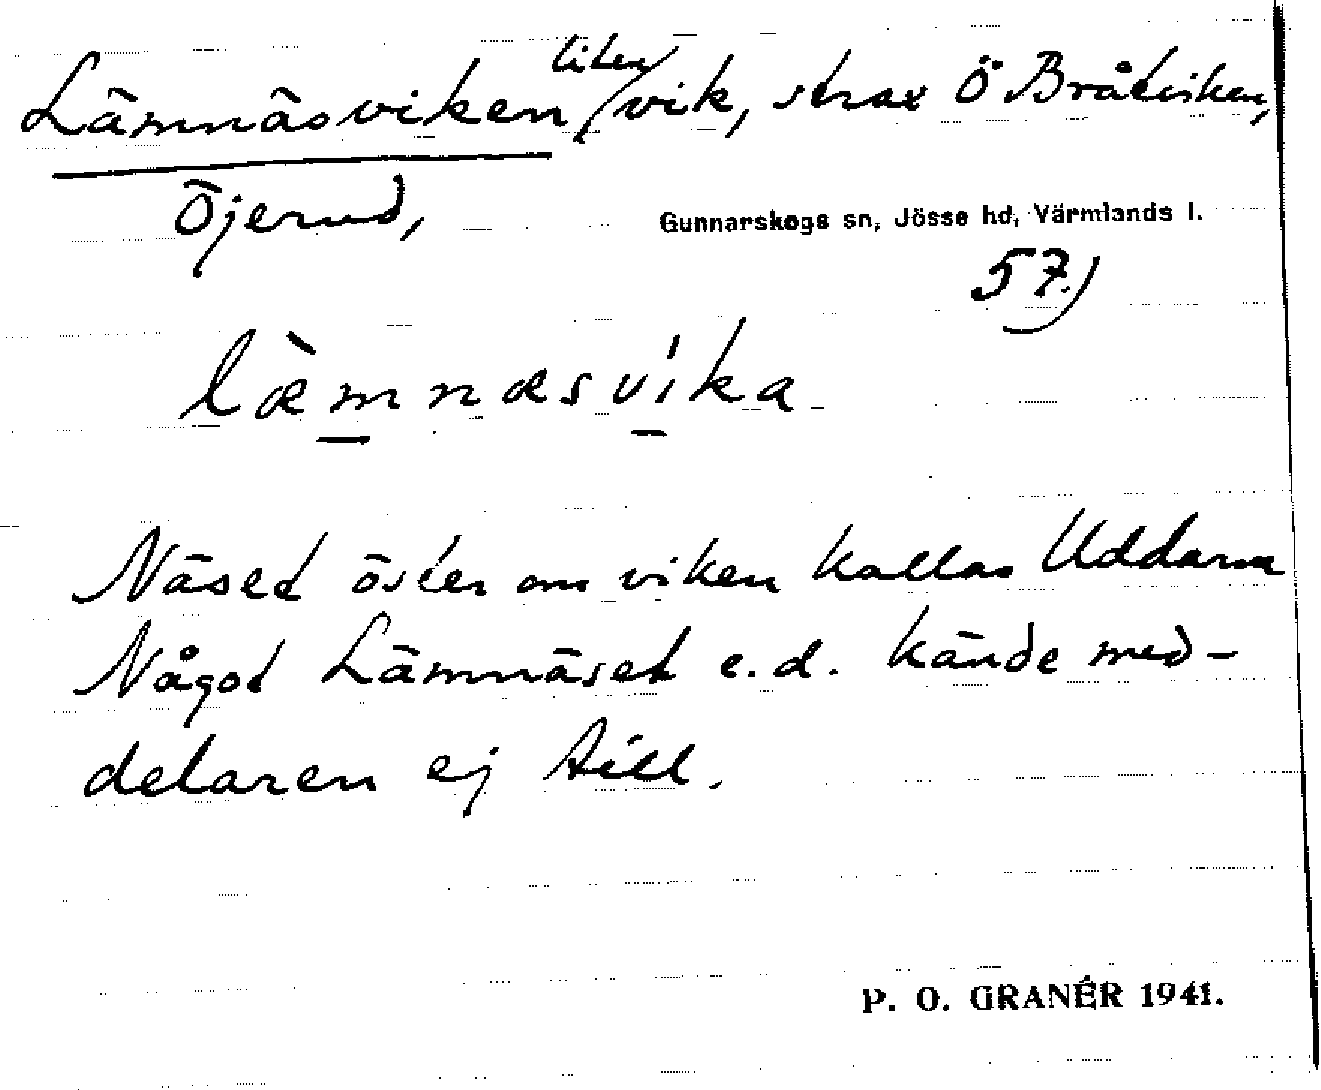 Lämnäsviken liten vik, strax Ö Bråtviken,
Öjerud,
Gunnarskogs sn, Jösse hd, Värmlands l.
57.)
læ̀mnæsvíka
Näset öster om viken kallas Uddarna
Något Lämnäset e.d. kände med-
delaren ej till.
P. O. GRANÉR 1941.